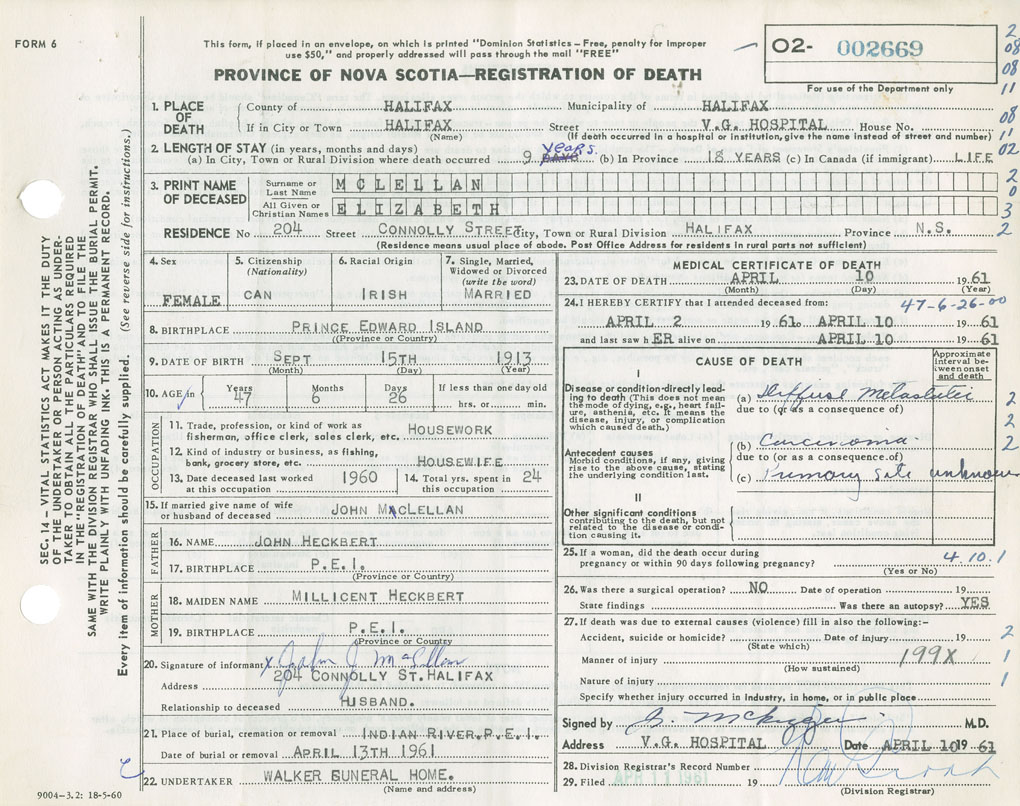 FORM 6
This form, if placed in an envelope, on which is printed "Dominion Statistics – Free, penalty for improper
use $50," and properly addressed will pass through the mail "FREE"
PROVINCE OF NOVA SCOTIA—REGISTRATION OF DEATH
02- 002669
For use of the Department only
2
08
08
11
08
11
02
2
0
3
2
SEC. 14 – VITAL STATISTICS ACT MAKES IT THE DUTY
OF THE UNDERTAKER OR PERSON ACTING AS UNDER-
TAKER TO OBTAIN ALL THE PARTICULARS REQUIRED
IN THE "REGISTRATION OF DEATH" AND TO FILE THE
SAME WITH THE DIVISION REGISTRAR WHO SHALL ISSUE THE BURIAL PERMIT.
WRITE PLAINLY WITH UNFADING INK. THIS IS A PERMANENT RECORD.
Every item of information should be carefully supplied. (See reverse side for instructions.)
1. PLACE OF DEATH
County of HALIFAX Municipality of HALIFAX
If in City or Town HALIFAX Street V.G. HOSPITAL House No.
(Name) (If death occurred in a hospital or institution, give the name instead of street and number)
2. LENGTH OF STAY (in years, months and days)
(a) In City, Town or Rural Division where death occurred 9 years (b) In Province 18 YEARS (c) In Canada (if immigrant) LIFE
3. PRINT NAME OF DECEASED
Surname or Last Name MCLELLAN
All Given or Christian Names ELIZABETH
RESIDENCE No 204 Street CONNOLLY STREET City, Town or Rural Division HALIFAX Province N.S.
(Residence means usual place of abode. Post Office Address for residents in rural parts not sufficient)
4. Sex FEMALE
5. Citizenship (Nationality) CAN
6. Racial Origin IRISH
7. Single, Married, Widowed or Divorced (write the word) MARRIED
8. BIRTHPLACE PRINCE EDWARD ISLAND
(Province or Country)
9. DATE OF BIRTH SEPT 15TH 1913
(Month) (Day) (Year)
10. AGE in Years 47 Months 6 Days 26 If less than one day old hrs. or min.
OCCUPATION
11. Trade, profession, or kind of work as fisherman, office clerk, sales clerk, etc. HOUSEWORK
12. Kind of industry or business, as fishing, bank, grocery store, etc. HOUSEWIFE
13. Date deceased last worked at this occupation 1960
14. Total yrs. spent in this occupation 24
15. If married give name of wife or husband of deceased JOHN MACLELLAN
FATHER
16. NAME JOHN HECKBERT
17. BIRTHPLACE P.E.I.
(Province or Country)
MOTHER
18. MAIDEN NAME MILLICENT HECKBERT
19. BIRTHPLACE P.E.I.
(Province or Country
20. Signature of informant x John J McLellan
Address 204 CONNOLLY ST. HALIFAX
Relationship to deceased HUSBAND.
21. Place of burial, cremation or removal INDIAN RIVER.P.E.I.
Date of burial or removal APRIL 13TH 1961
22. UNDERTAKER WALKER BUNERAL HOME.
(Name and address)
9004—3.2: 18-5-60
MEDICAL CERTIFICATE OF DEATH
23. DATE OF DEATH APRIL 10 1961
(Month) (Day) (Year)
24. I HEREBY CERTIFY that I attended deceased from: 47-6-26-00
APRIL 2 1961 to APRIL 10 1961
and last saw hER alive on APRIL 10 1961
CAUSE OF DEATH
Approximate interval between onset and death
I
Disease or condition-directly leading to death (This does not mean the mode of dying, e.g., heart failure, asthenia, etc. It means the disease, injury, or complication which caused death.)
(a) Diffuse Metastatic
due to (or as a consequence of)
(b) Carcinoma.
due to (or as a consequence.of)
(c) Primary site unknown
Antecedent causes
Morbid conditions, if any, giving rise to the above cause, stating the underlying condition last.
II
Other significant conditions
contributing to the death, but not related to the disease or condition causing it.
2
2
2
25. If a woman, did the death occur during pregnancy or within 90 days following pregnancy? 4.10.1
(Yes or No)
26. Was there a surgical operation? NO Date of operation 19
State findings Was there an autopsy? YES
27. If death was due to external causes (violence) fill in also the following:–
Accident, suicide or homicide? Date of injury 19 2
(State which)
Manner of injury 199X 1
(How sustained)
Nature of injury 1
Specify whether injury occurred in industry, in home, or in public place
Signed by M.D.
Address V.G. HOSPITAL Date APRIL 10 1961
28. Division Registrar's Record Number
29. Filed APR 11 1961 19
(Division Registrar)